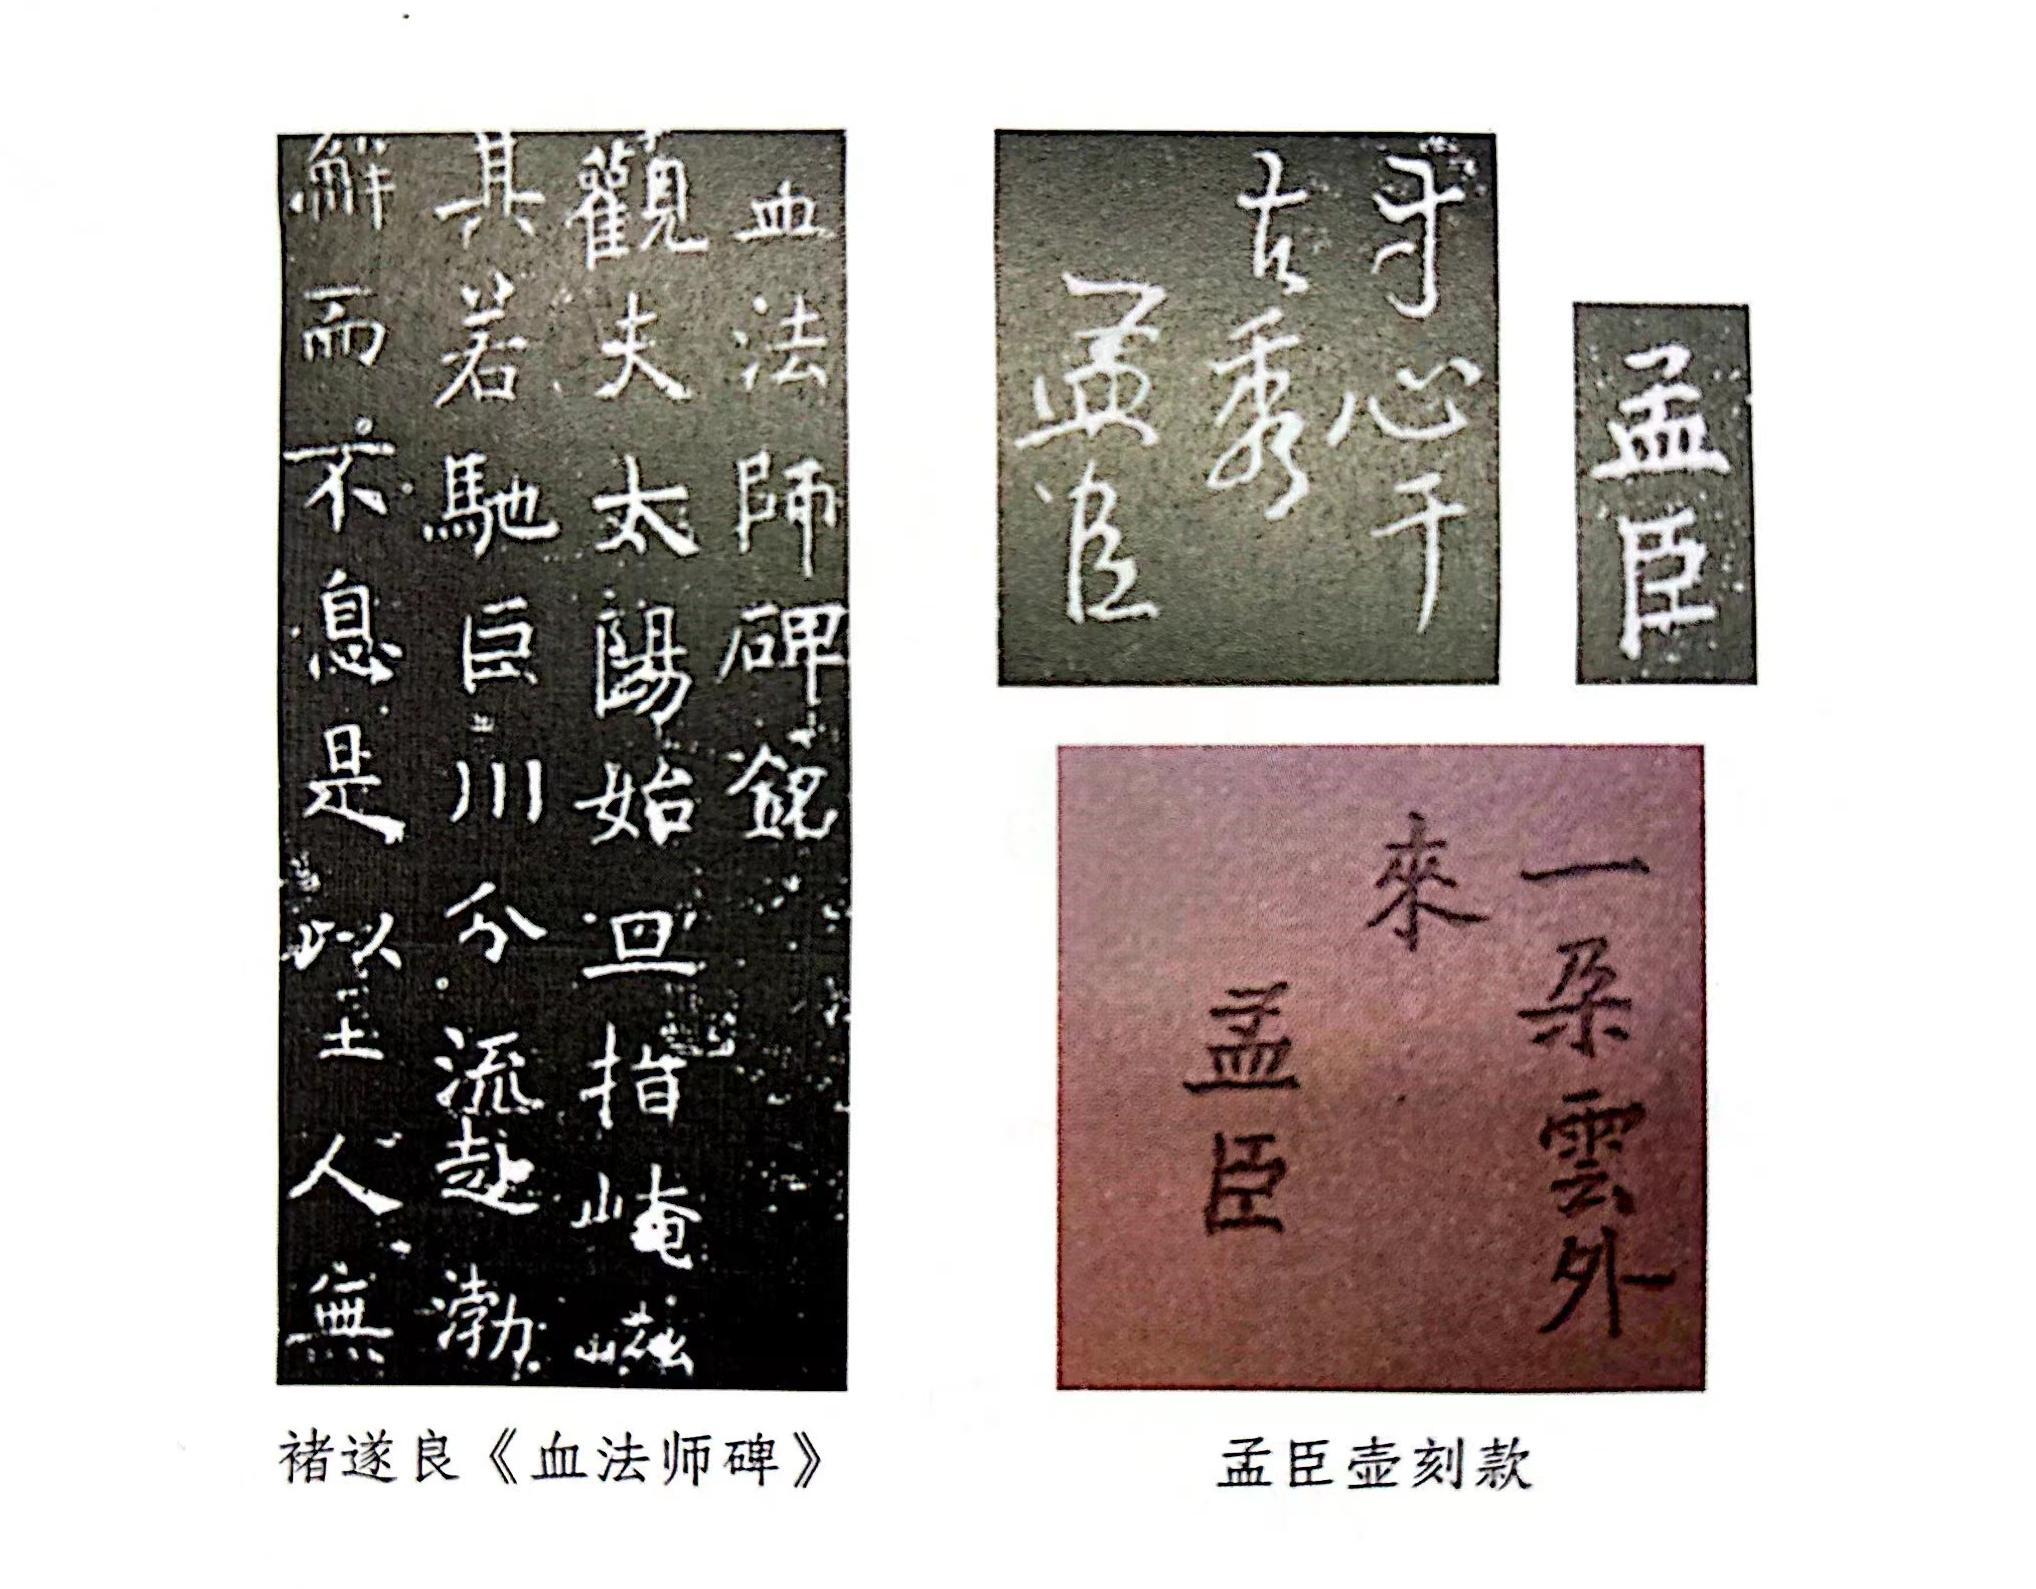 血法師碑銘
觀夫太陽始旦指崦嵫
其若馳巨川分流赴渤
澥而不息是以至人無
褚遂良《血法师碑》
心千
古秀
孟臣
孟臣
一朵雲外
來
孟臣
孟臣壶刻款